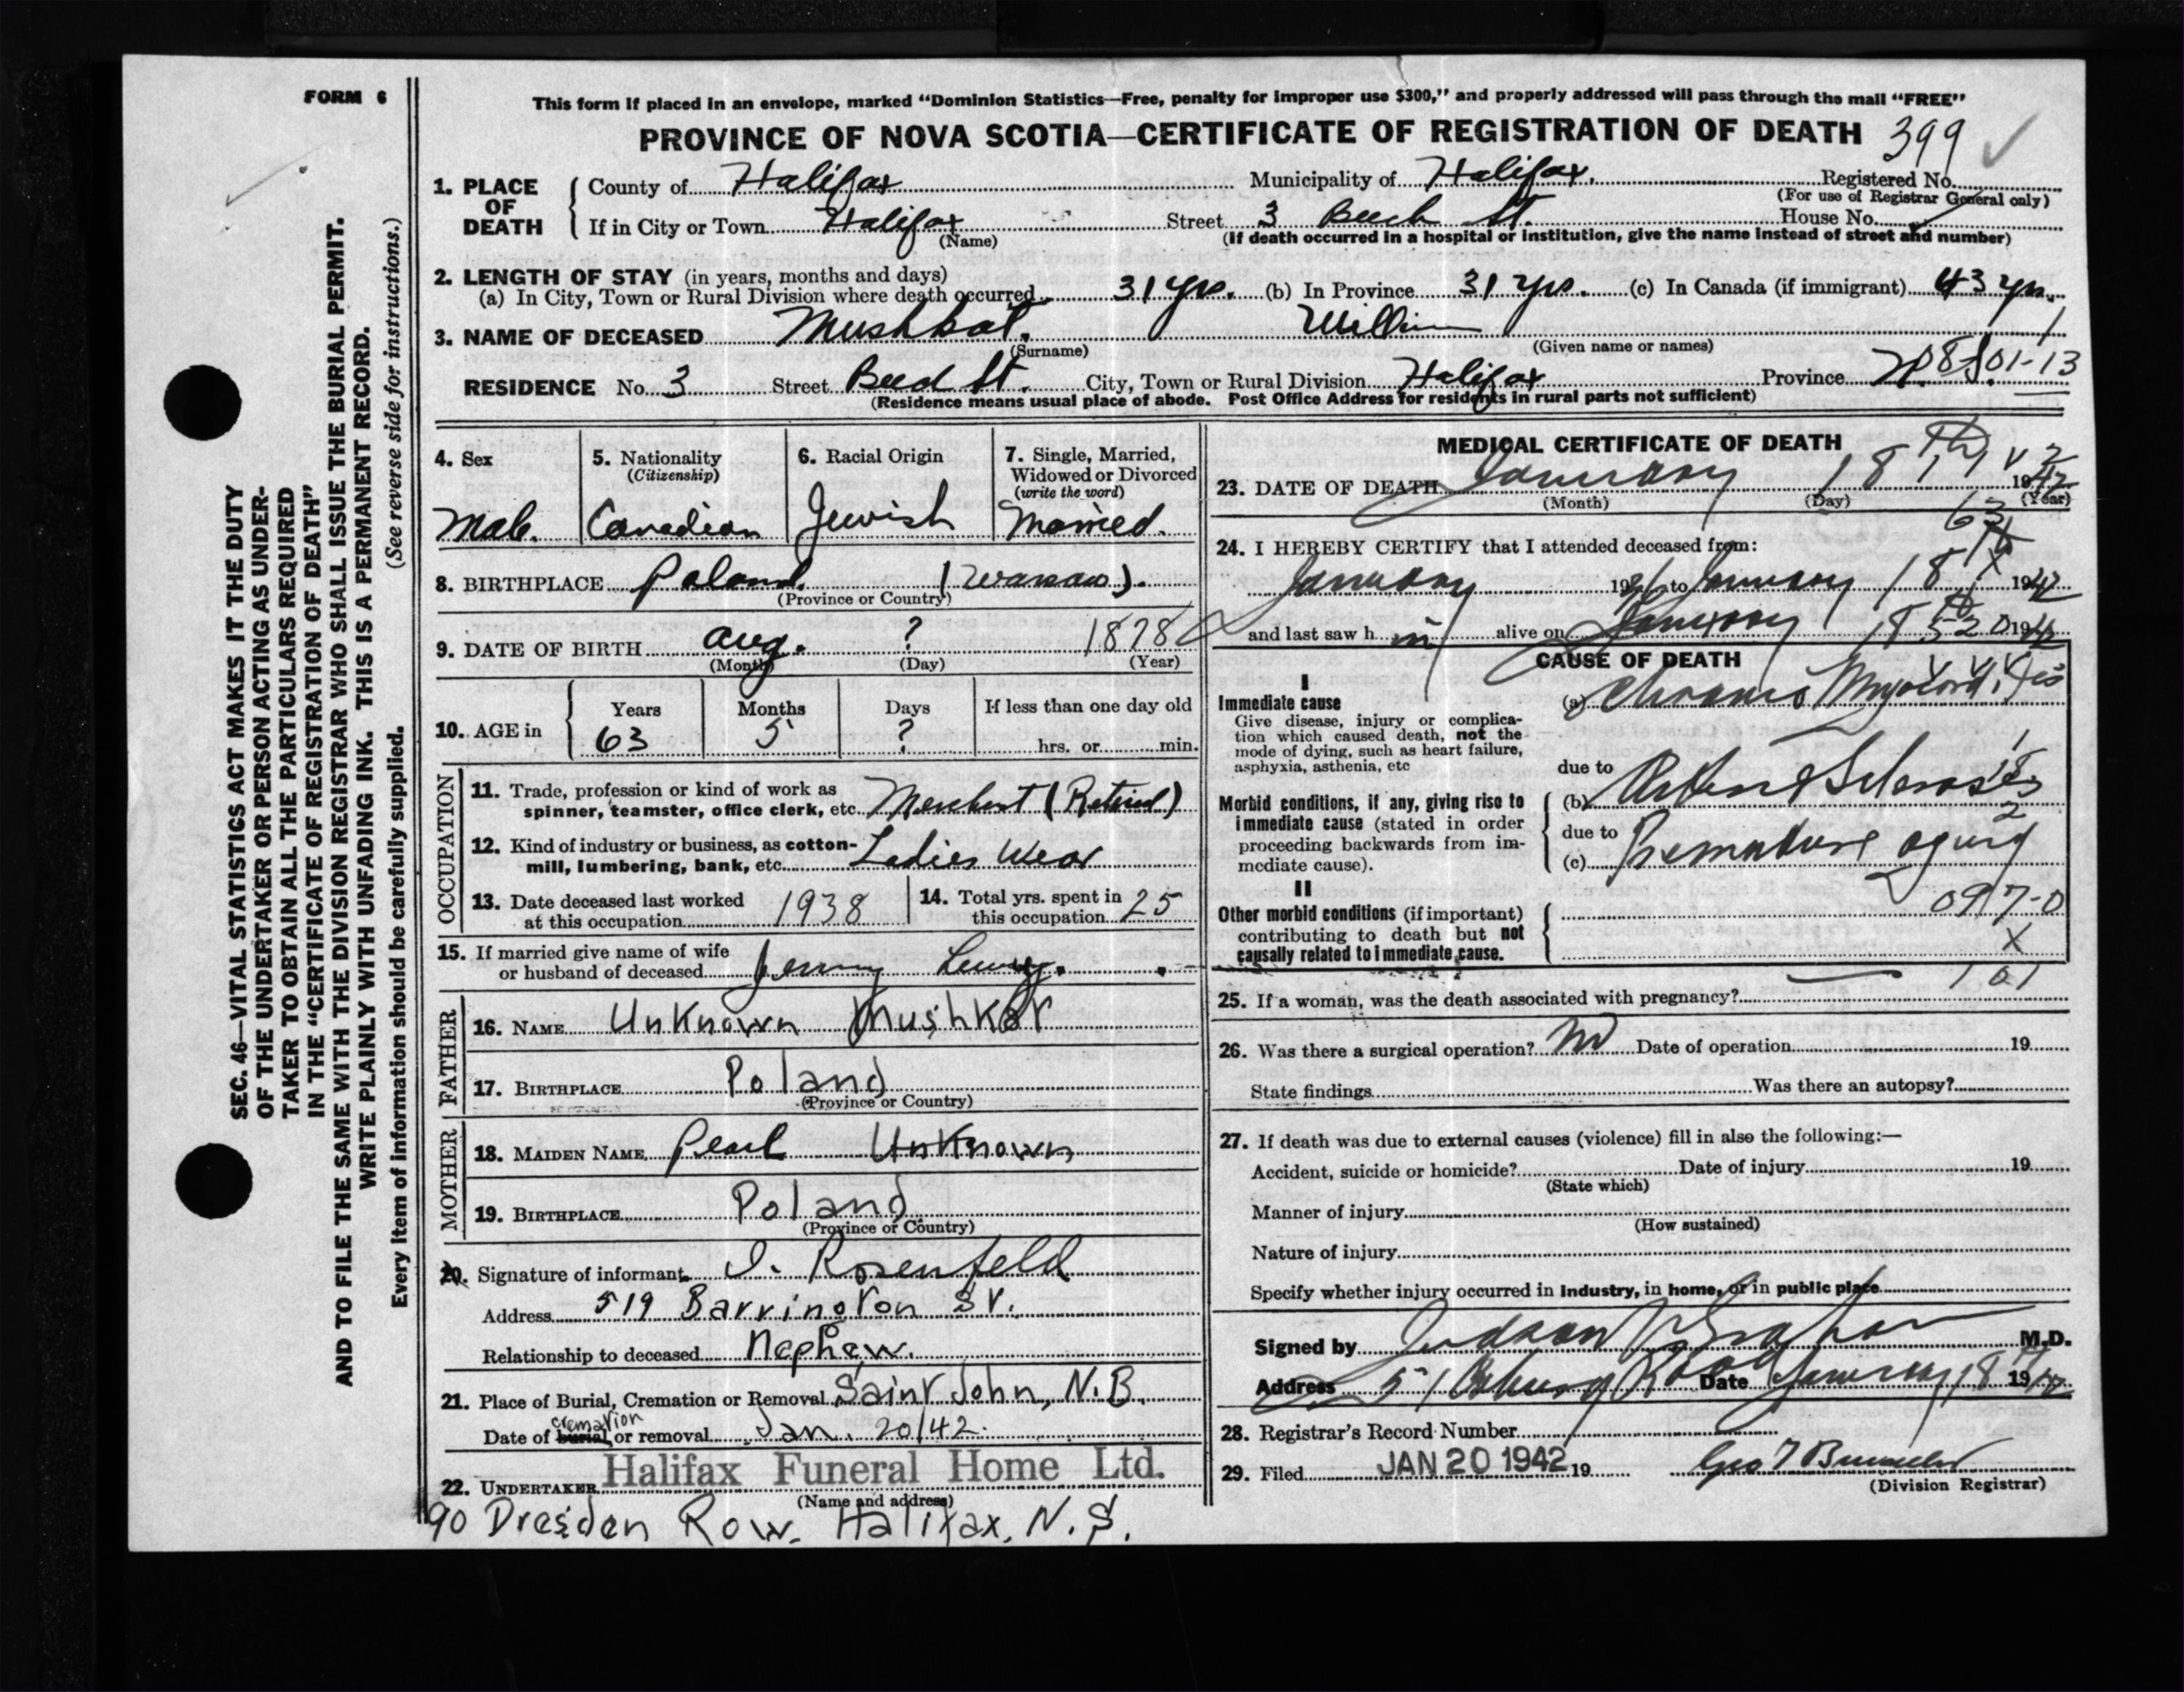 FORM 6
This form if placed in an envelope, marked "Dominion Statistics—Free, penalty for improper use $300," and properly addressed will pass through the mail "FREE"
PROVINCE OF NOVA SCOTIA—CERTIFICATE OF REGISTRATION OF DEATH 399
1. PLACE OF DEATH County of Halifax Municipality of Halifax. Registered No.
(For use of Registrar General only)
If in City or Town Halifax Street 3 Beech St. House No.
(Name) (If death occurred in a hospital or institution, give the name instead of street and number)
2. LENGTH OF STAY (in years, months and days)
(a) In City, Town or Rural Division where death occurred 31 yrs. (b) In Province 31 yrs. (c) In Canada (if immigrant) 43 yrs.
3. NAME OF DECEASED Mushkat. William
(Surname) (Given name or names)
RESIDENCE No. 3 Street Beech St. City, Town or Rural Division Halifax Province N.S. 801-13
(Residence means usual place of abode. Post Office Address for residents in rural parts not sufficient)
4. Sex
Male.
5. Nationality
(Citizenship)
Canadian
6. Racial Origin
Jewish
7. Single, Married,
Widowed or Divorced
(write the word)
Married.
8. BIRTHPLACE Poland. (Warsaw).
(Province or Country)
9. DATE OF BIRTH Aug. ? 1878
(Month) (Day) (Year)
10. AGE in
Years Months Days If less than one day old
63 5 ? hrs. or min.
OCCUPATION
11. Trade, profession or kind of work as
spinner, teamster, office clerk, etc. Merchant (Retired)
12. Kind of industry or business, as cotton-
mill, lumbering, bank, etc. Ladies Wear
13. Date deceased last worked
at this occupation 1938
14. Total yrs. spent in
this occupation 25
15. If married give name of wife
or husband of deceased Jenny
FATHER
16. NAME Unknown Mushkat
17. BIRTHPLACE Poland
(Province or Country)
MOTHER
18. MAIDEN NAME Pearl Unknown
19. BIRTHPLACE Poland
(Province or Country)
20. Signature of informant I. Rosenfeld
Address 519 Barrington St.
Relationship to deceased Nephew.
21. Place of Burial, Cremation or Removal Saint John, N.B.
cremation
Date of burial or removal Jan. 20/42.
22. UNDERTAKER Halifax Funeral Home Ltd.
(Name and address)
90 Dresden Row. Halifax, N.S.
MEDICAL CERTIFICATE OF DEATH
23. DATE OF DEATH January 18th 1942
(Month) (Day) (Year)
63
24. I HEREBY CERTIFY that I attended deceased from:
January 19 to January 18 1942
and last saw h im alive on January 18 1942
CAUSE OF DEATH
I
Immediate cause
Give disease, injury or complica-
tion which caused death, not the
mode of dying, such as heart failure,
asphyxia, asthenia, etc
(a) Chronic Myocarditis
due to
Morbid conditions, if any, giving rise to
immediate cause (stated in order
proceeding backwards from im-
mediate cause).
(b) Arterio Sclerosis
due to
(c) Premature aging
II
Other morbid conditions (if important)
contributing to death but not
causally related to immediate cause.
097-0
X
101
25. If a woman, was the death associated with pregnancy?
26. Was there a surgical operation? No Date of operation 19
State findings Was there an autopsy?
27. If death was due to external causes (violence) fill in also the following:—
Accident, suicide or homicide? Date of injury 19
(State which)
Manner of injury
(How sustained)
Nature of injury
Specify whether injury occurred in industry, in home, or in public place
Signed by Judson V Graham M.D.
Address 51 Coburg Road Date January 18 1942
28. Registrar's Record Number
29. Filed JAN 20 1942 19
(Division Registrar)
SEC. 46—VITAL STATISTICS ACT MAKES IT THE DUTY
OF THE UNDERTAKER OR PERSON ACTING AS UNDER-
TAKER TO OBTAIN ALL THE PARTICULARS REQUIRED
IN THE "CERTIFICATE OF REGISTRATION OF DEATH"
AND TO FILE THE SAME WITH THE DIVISION REGISTRAR WHO SHALL ISSUE THE BURIAL PERMIT.
WRITE PLAINLY WITH UNFADING INK. THIS IS A PERMANENT RECORD.
Every item of information should be carefully supplied. (See reverse side for instructions.)